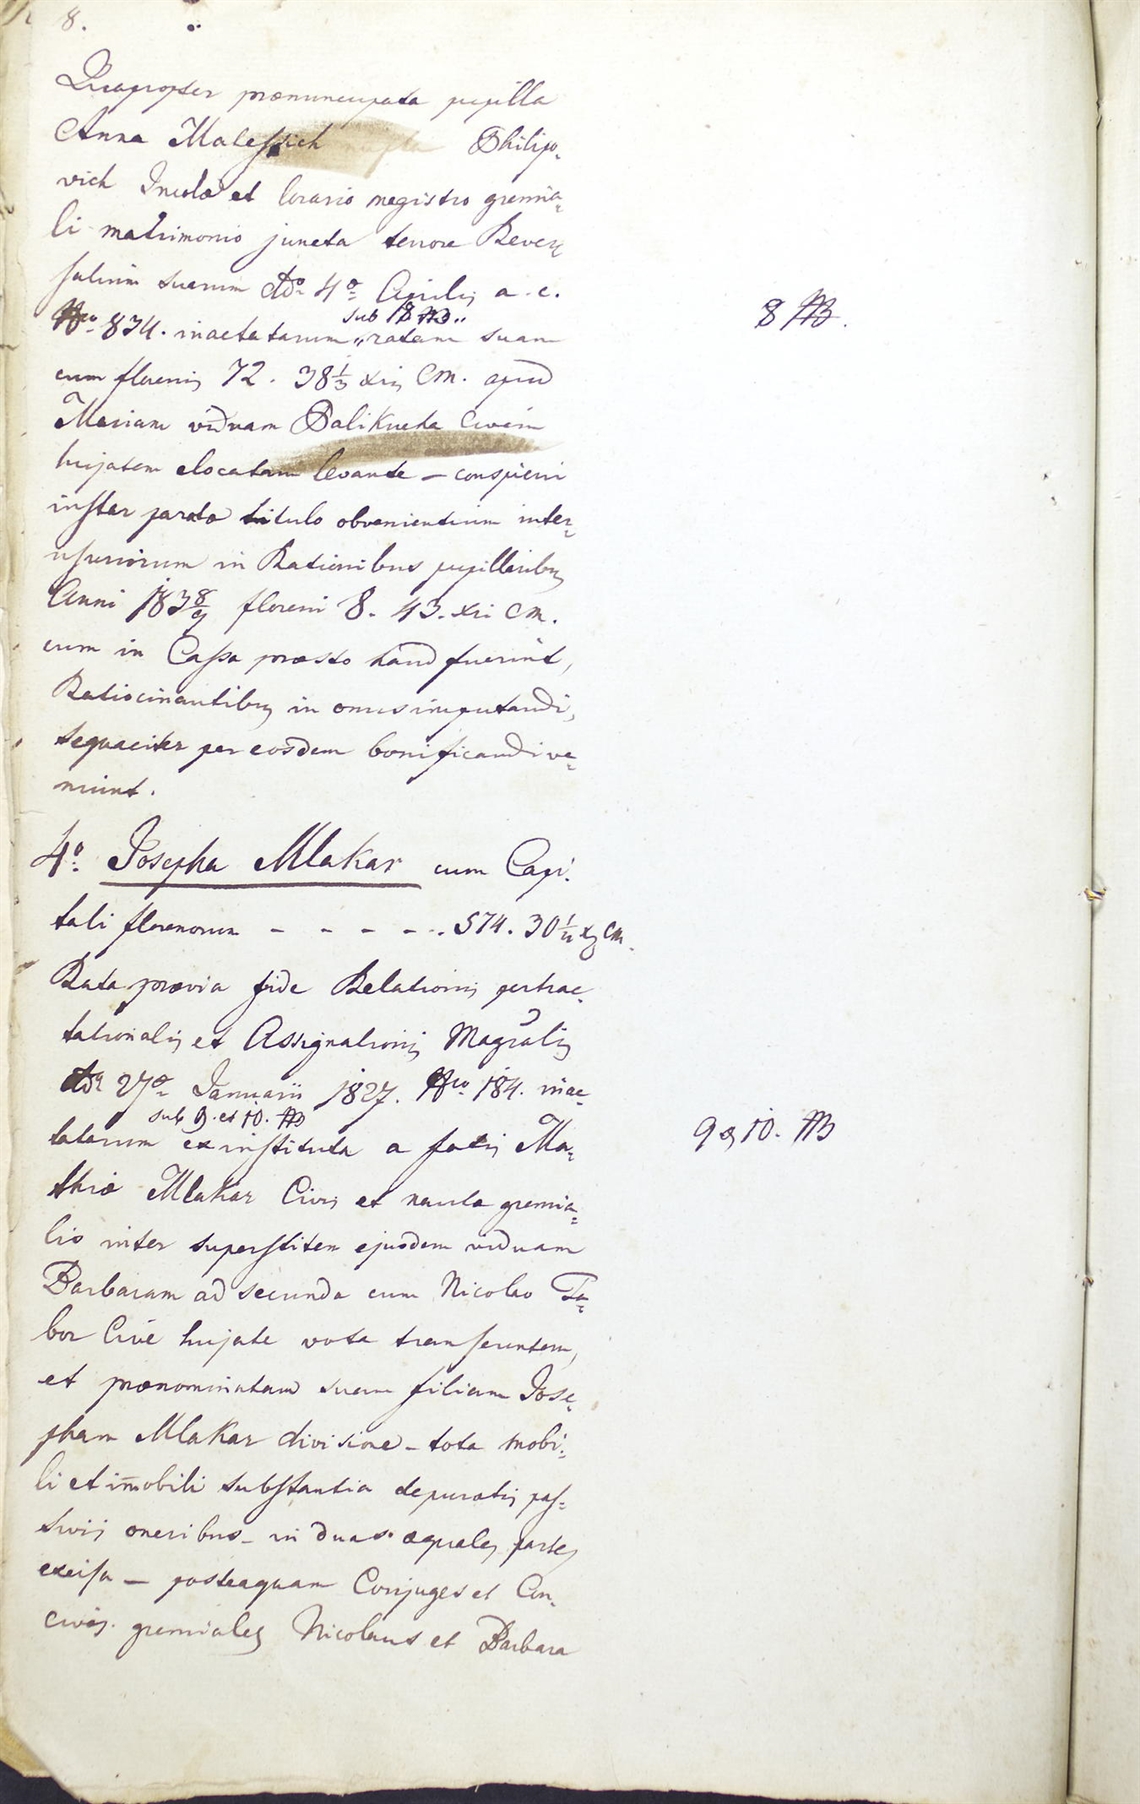 8.
Quapropter prænuncupata pupilla
Anna Malessich Philipo-
vich Incolæ et lorario magistro gremia-
li matrimonio juncta tenore Rever-
salium suarum ddo 4a Aprilis a. c.
Nro 834. inactatarum „ratam suam
sub 8 ₶„
8 ₶.
cum florenis 72. 38 1/3 xris CM. apud
Mariam viduam Palikucha Civem
hujatem elocatam levante – conspicui
instar parato titulo obvenientium inter-
usuriorum in Rationibus pupillaribus
Anni 1838/9 floreni 8. 43. xri CM.
cum in Cassa præsto haud fuerint,
Ratiocinantibus in onus imputandi,
sequaciter per eosdem bonificandi ve-
niunt.
4o. Josepha Mlakar cum Capi-
tali florenorum - - - - - . 574. 30 1/4 xr CM.
Rata prævia fide Relationis pertrac-
tationalis et Assignationis Magralis
ddo 27a Januarii 1827. Nro 184. inac-
sub 9. et 10. ₶
tatarum ex instituta a fatis Ma-
9 & 10. ₶
thiæ Mlakar Civis et nautæ gremia-
lis inter superstitem ejusdem viduam
Barbaram ad secunda cum Nicolao Ta-
bor Cive hujate vota transeuntem,
et prænominatam suam filiam Jose-
pham Mlakar divisione – tota mobi-
li et immobili substantia depuratis pas-
sivis oneribus – in duas æquales partes
excisa – posteaquam Conjuges et Con-
cives gremiales Nicolaus et Barbara